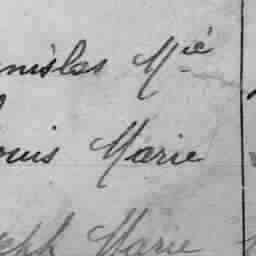 nislas Mié
ouis Marie
eph Marie